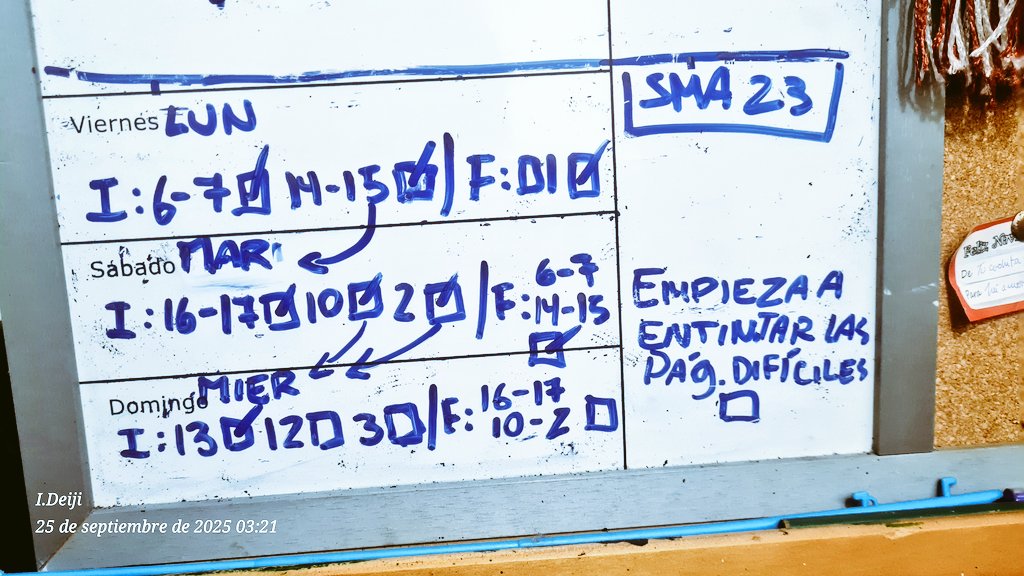 Viernes LUN
I: 6-7 ☑ 14-15 ☑ / F: D1 ☑
Sábado MAR
I: 16-17 ☑ 10 ☑ 2 ☑ / F: 6-7
14-15
☑
Domingo MIER
I: 13 ☑ 12 ☐ 3 ☐ / F: 16-17
10-2 ☐
SMA 23
EMPIEZA A
ENTINTAR LAS
PÁG. DIFÍCILES
☐
Feliz
De Tu
Para
I.Deiji
25 de septiembre de 2025 03:21